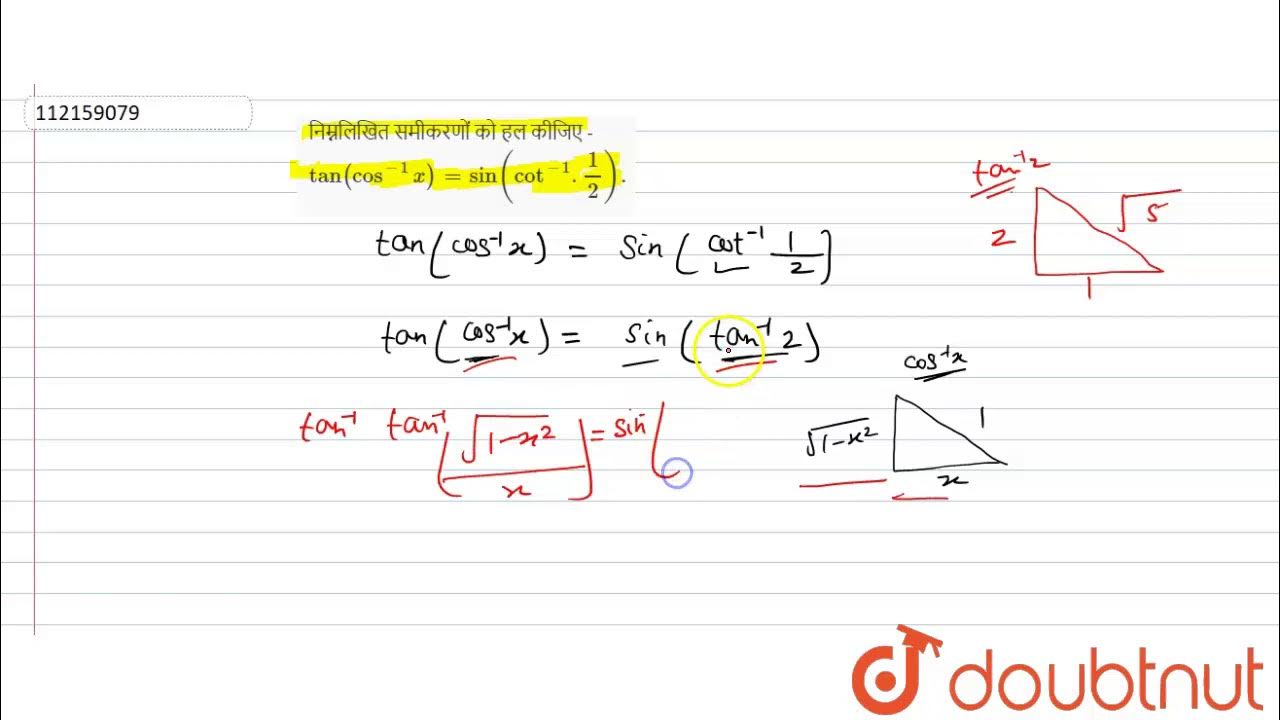 112159079
निम्नलिखित समीकरणों को हल कीजिए -
tan(cos⁻¹ x) = sin(cot⁻¹. 1/2).
tan(cos⁻¹x) = sin(cot⁻¹ 1/2)
tan(cos⁻¹x) = sin(tan⁻¹ 2)
tan⁻¹ tan⁻¹[√(1-x²)/x] = sin(
tan⁻¹2
2
√5
1
cos⁻¹x
√(1-x²)
1
x
doubtnut